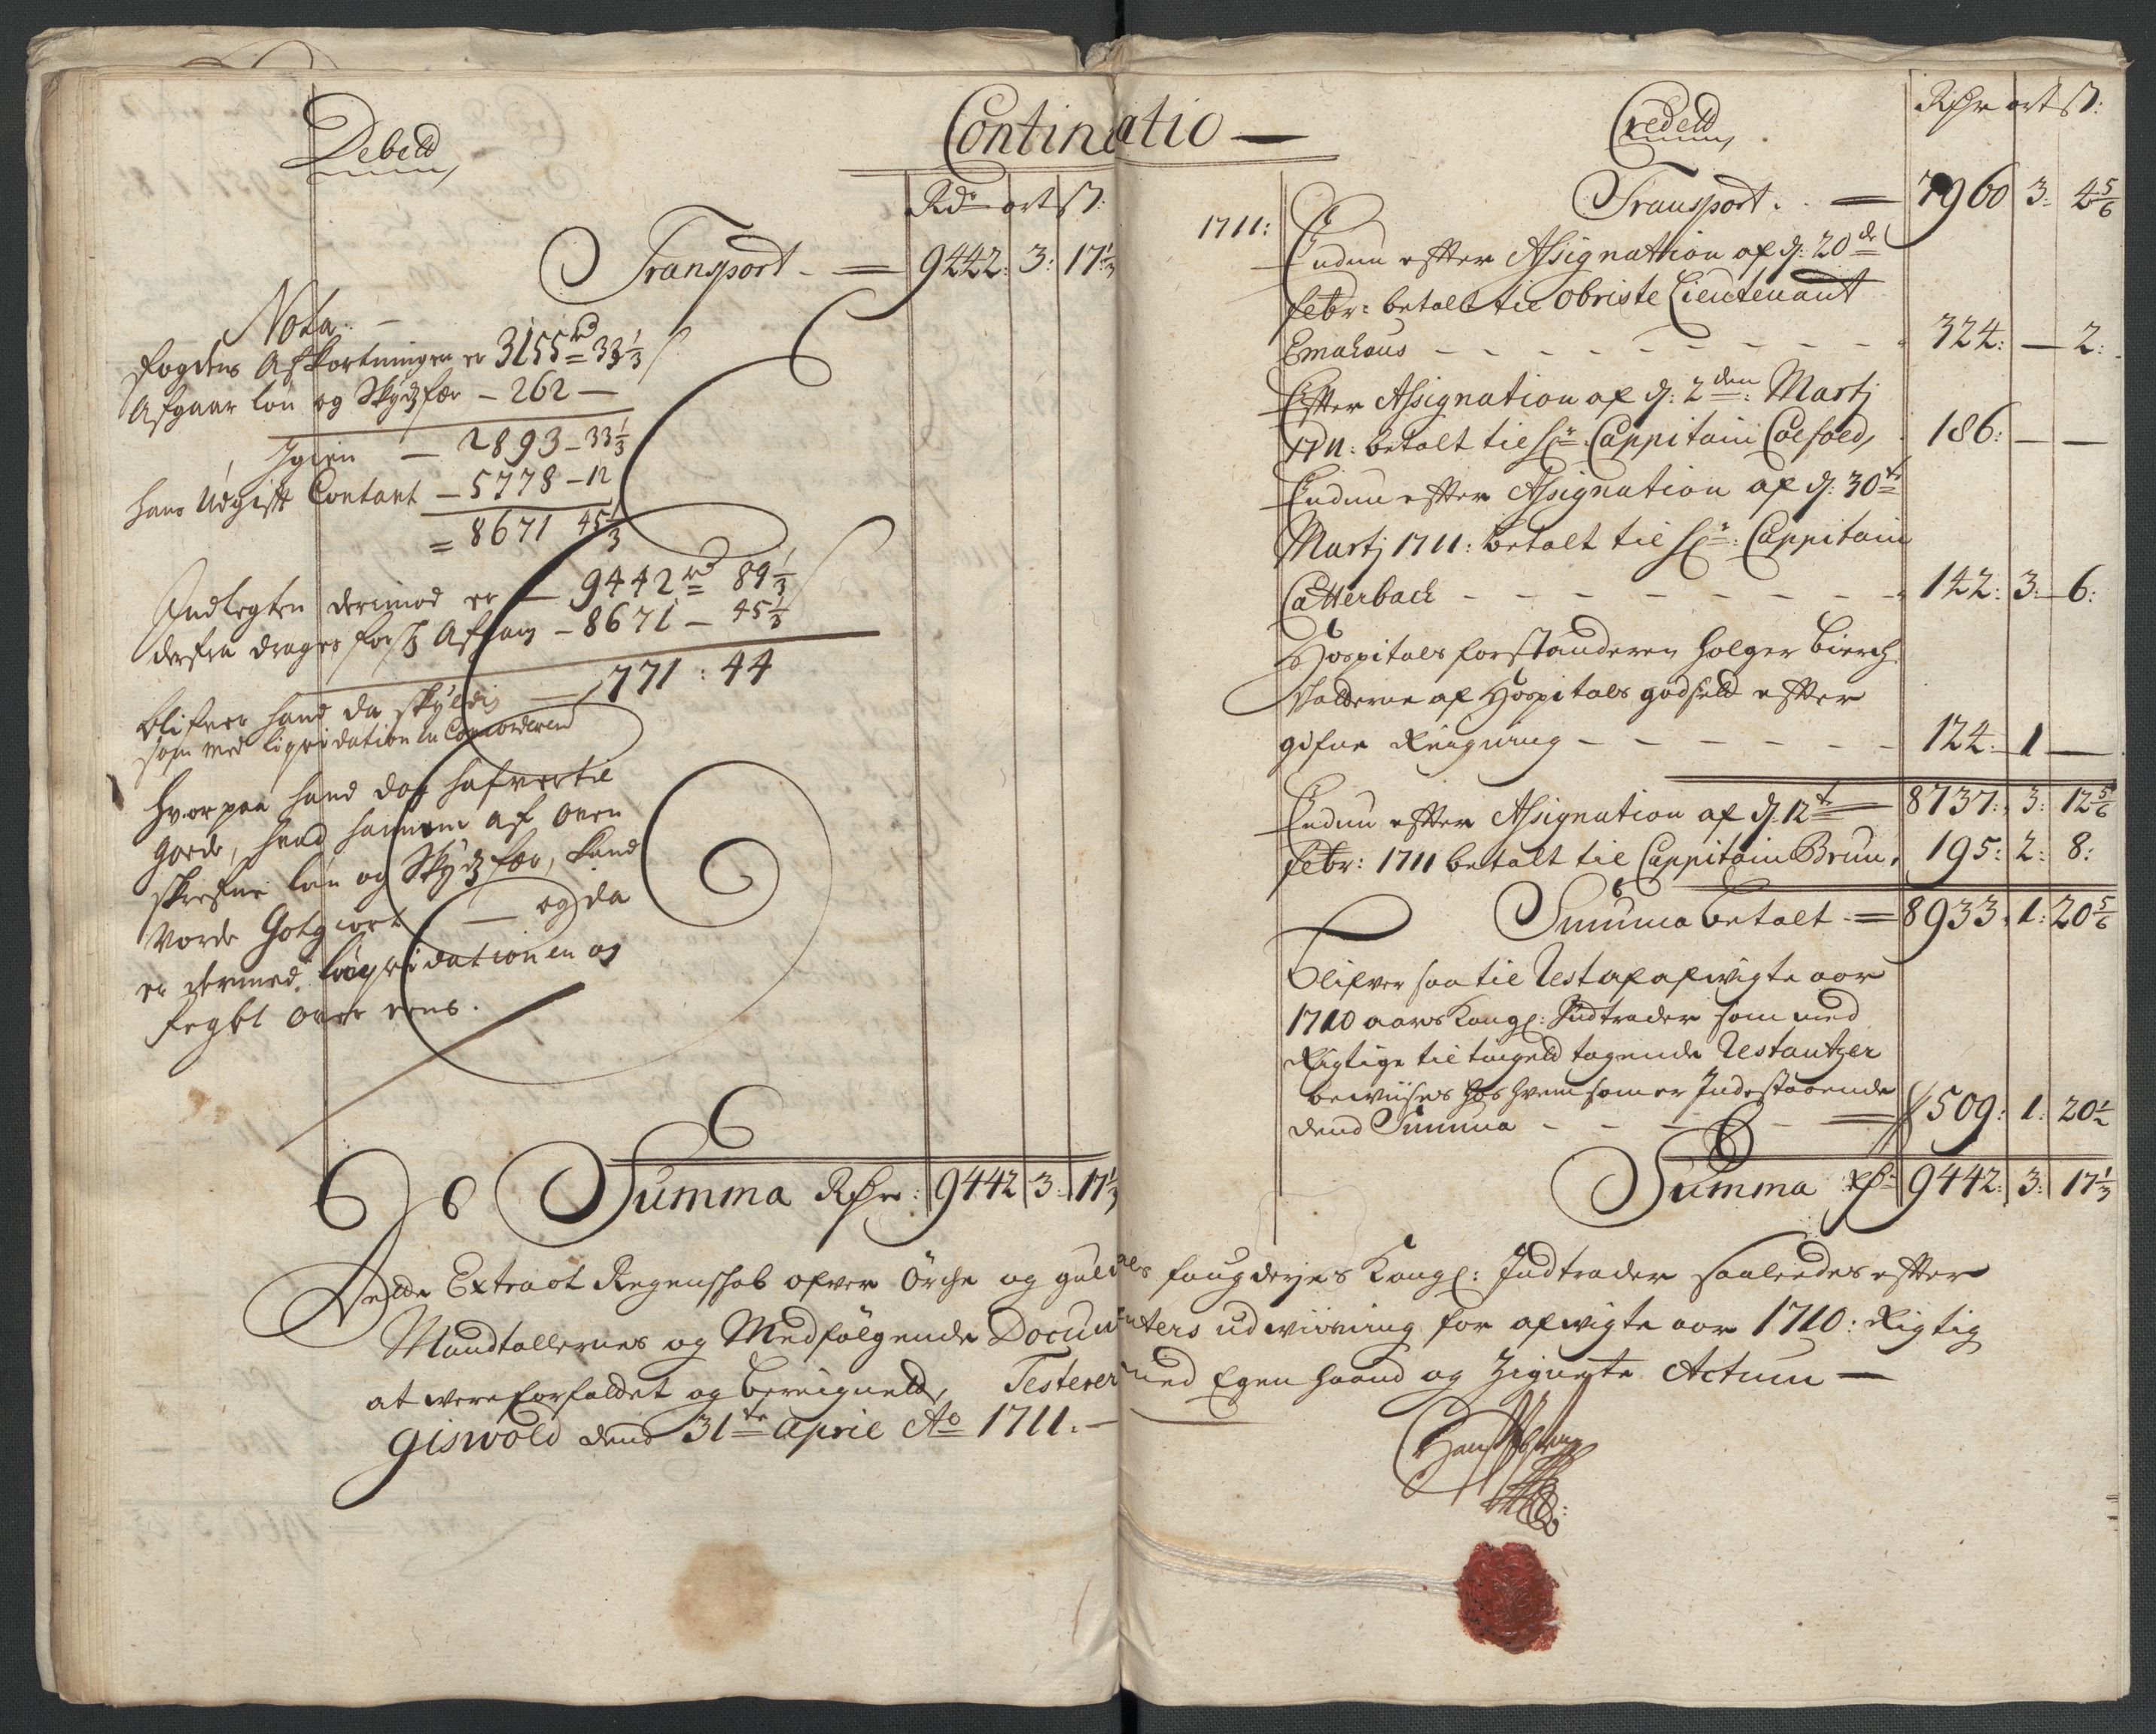 Debett
Continuatio —
Rdr ort ß:
Transport - = 9442: 3: 17 1/3
Nota. -
fogdens Afkortningen er 3155 rd 33 1/3
Afgaar løn og Skydzfær - 262 -
Igien - 2893 - 33 1/3
hans Udgift Contant - 5778 - 12
= 8671 45 1/3
Indtegten derimod er - 9442 rd 89 1/3
derfra drages forsch: Afgang - 8671 - 45 1/3
blifver hand da skyldig = 771 : 44
som med liqvidationen Concorderend
hvorpaa hand dog hafver til
gode, hvad hannem af oven
skrefne løn og Skydzfær, kand
vorde Gotgiort — og da
er dermed liqvidationen og
fegbt over eens.
Summa Rdr: 9442 3: 17 1/3
Credett
Rdr ort ß:
Transport. - = 7960 3: 4 5/6
1711: Endnu efter Assignattion af d: 20de
febr: betalt til Obriste Lieutenant
Emahaus - - - - - - 324: — 2:
Efter Assignation af d: 2den: Martj
1711: betalt til Sr: Cappitain Coefoed, 186: — —
Endnu efter Assignation af d: 30te
Martj 1711: betalt til Sr: Cappitain
Catterbach - - - - - - 142: 3: 6:
Hospitals forstanderen Holger Bierch
Halderne af Hospitals godset efter
gifne Reigning - - - - - - 124: 1 —
8737: 3: 12 5/6
Endnu efter Assignation af d. 12te
febr: 1711 betalt til Cappitain Brun, 195: 2: 8:
Summa betalt = 8933: 1: 20 5/6
Blifver saa til Rest af afvigte aar
1710 aars Kongl: Indtrader som med
Rigtige til tingeld tagende Restantzer
beviises hos hvem som er Indestaaende
dend Summa - - - = 509: 1: 20 1/2
Summa Rd 9442: 3: 17 1/3
Dette Extract Regenskab ofver Örche og guldals fougderjes Kongl: Indtrader saaleedes efter
Mandtallernes og Medfölgende Documenters udviisning for afvigte aar 1710: Rigtig
at vere forfaldet og bereignett, Testerer med Egen haand og Zignete Actum —
Giswold dend 31te april Ao 1711. —